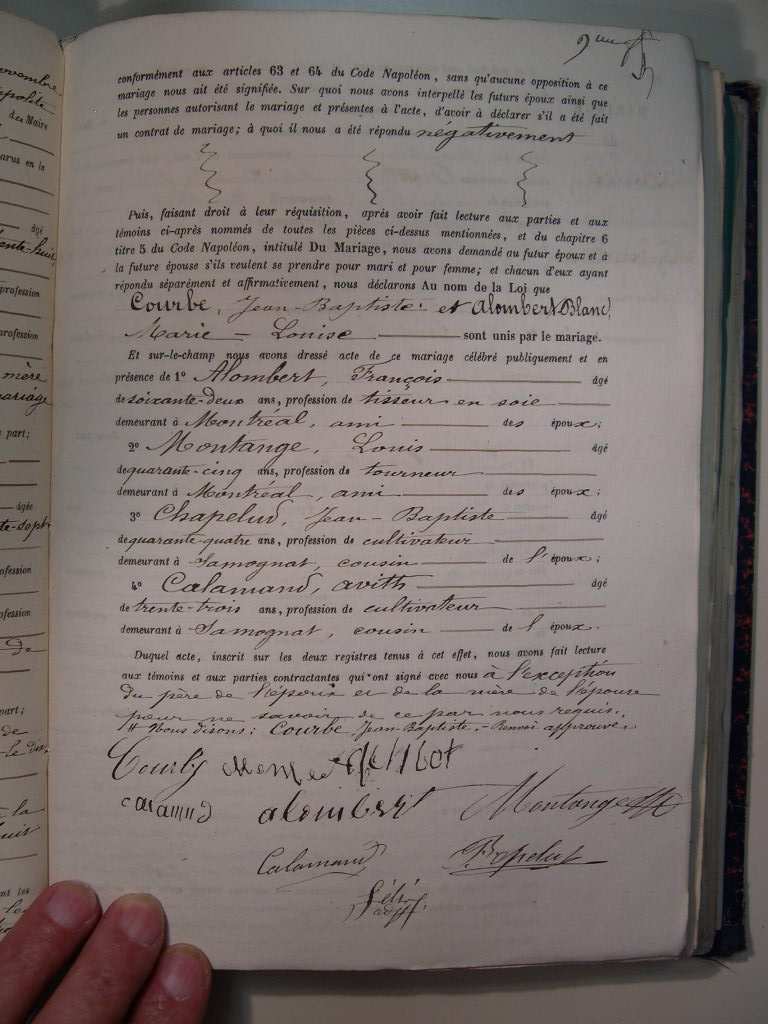 conformément aux articles 63 et 64 du Code Napoléon, sans qu'aucune opposition à ce
mariage nous ait été signifiée. Sur quoi nous avons interpellé les futurs époux ainsi que
les personnes autorisant le mariage et présentes à l'acte, d'avoir à déclarer s'il a été fait
un contrat de mariage; à quoi il nous a été répondu négativement
Puis, faisant droit à leur réquisition, après avoir fait lecture aux parties et aux
témoins ci-après nommés de toutes les pièces ci-dessus mentionnées, et du chapitre 6
titre 5 du Code Napoléon, intitulé Du Mariage, nous avons demandé au futur époux et à
la future épouse s'ils veulent se prendre pour mari et pour femme; et chacun d'eux ayant
répondu séparément et affirmativement, nous déclarons Au nom de la Loi que
Courbe, Jean-Baptiste et Alombert Blanc,
Marie-Louise sont unis par le mariage.
Et sur-le-champ nous avons dressé acte de ce mariage célébré publiquement et en
présence de 1° Alombert, François âgé
de soixante-deux ans, profession de tisseur en soie
demeurant à Montréal, ami des époux;
2° Montange, Louis âgé
de quarante-cinq ans, profession de tourneur
demeurant à Montréal, ami des époux;
3° Chapelud, Jean-Baptiste âgé
de quarante-quatre ans, profession de cultivateur
demeurant à Samognat, cousin de l'époux;
4° Calamand, avith âgé
de trente-trois ans, profession de cultivateur
demeurant à Samognat, cousin de l'époux.
Duquel acte, inscrit sur les deux registres tenus à cet effet, nous avons fait lecture
aux témoins et aux parties contractantes qui ont signé avec nous à l'exception
du père de l'époux et de la mère de l'épouse
pour ne savoir de ce par nous requis.
# Nous disons: Courbe Jean-Baptiste. - Renvoi approuvé.
Courbe
alombert Montange
Calamand